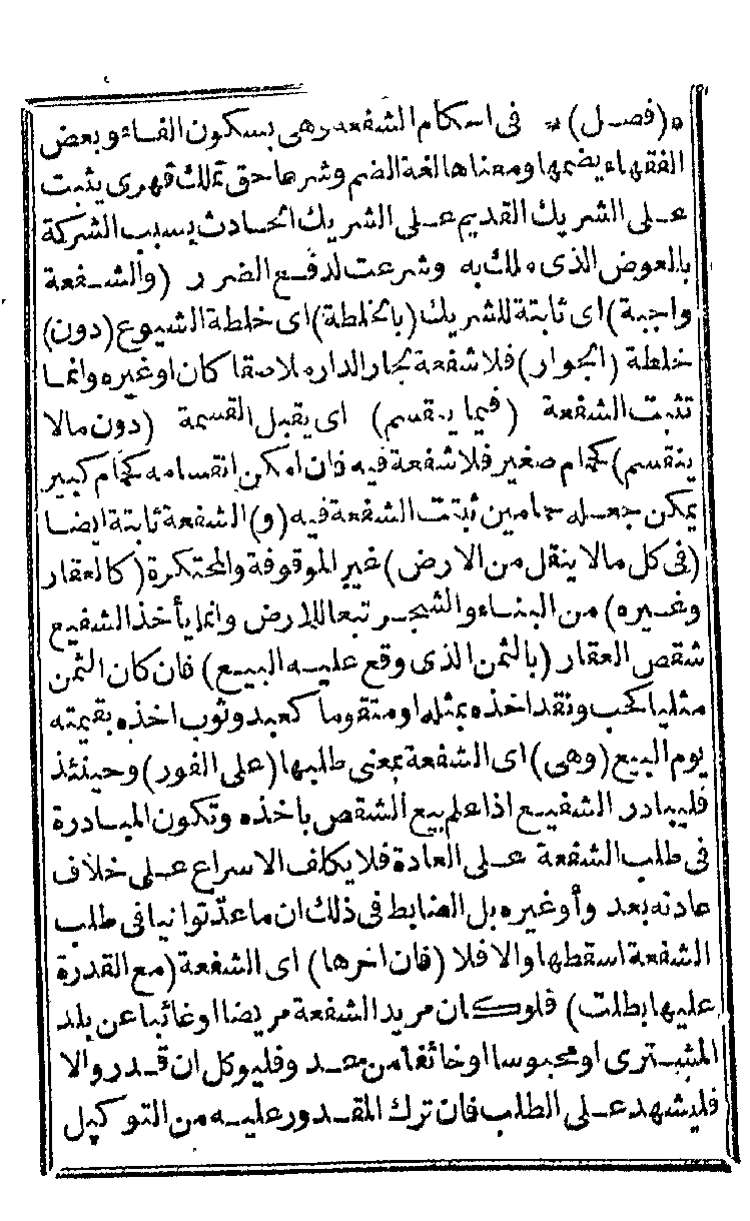 *(فصل)* فى احكام الشفعة وهى بسكون الفاء وبعض
الفقهاء يضمها ومعناها لغة الضم وشرعا حق تملك قهرى يثبت
على الشريك القديم على الشريك الحادث بسبب الشركة
بالعوض الذى ملك به وشرعت لدفع الضرر (والشفعة
واجبة) اى ثابتة للشريك (بالخلطة) اى خلطة الشيوع (دون)
خلطة (الجوار) فلا شفعة لجار الدار ملاصقا كان او غيره وانما
تثبت الشفعة (فيما ينقسم) اى يقبل القسمة (دون مالا
ينقسم) كحمام صغير فلا شفعة فيه فان امكن انقسامه كحمام كبير
يمكن جعله حمامين ثبتت الشفعة فيه (و) الشفعة ثابتة ايضا
(فى كل مالا ينقل من الارض) غير الموقوفة والمحتكرة (كالعقار
وغيره) من البناء والشجر تبعا للارض وانما يأخذ الشفيع
شقص العقار (بالثمن الذى وقع عليه البيع) فان كان الثمن
مثليا كحب ونقد اخذه بمثله او متقوما كعبد وثوب اخذه بقيمته
يوم البيع (وهى) اى الشفعة بمعنى طلبها (على الفور) وحينئذ
فليبادر الشفيع اذا علم بيع الشقص باخذه وتكون المبادرة
فى طلب الشفعة على العادة فلا يكلف الاسراع على خلاف
عادته بعد و أو غيره بل الضابط فى ذلك ان ما عدّ توانيا فى طلب
الشفعة اسقطها والا فلا (فان اخرها) اى الشفعة (مع القدرة
عليها بطلت) فلو كان مريد الشفعة مريضا او غائبا عن بلد
المشترى او محبوسا او خائفا من عدو فليوكل ان قدر والا
فليشهد على الطلب فان ترك المقدور عليه من التوكيل